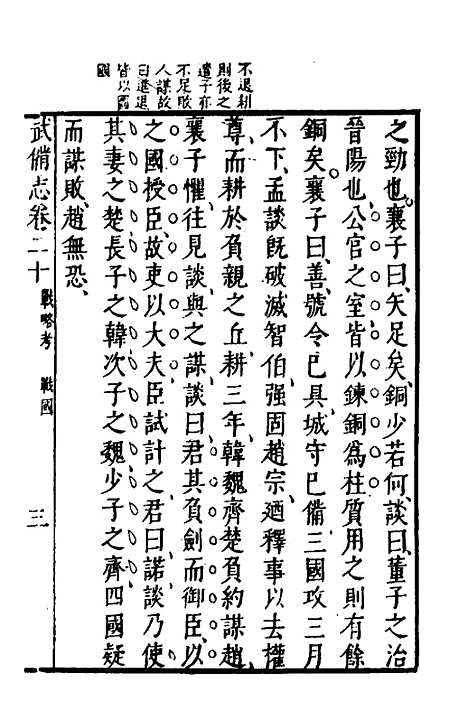 不退耕
則後之
遣子亦
不足敗
人謀故
曰進退
皆以國
國
之勁也襄子曰矢足矣銅少若何談曰董子之治
晉陽也公官之室皆以鍊銅爲柱質用之則有餘
銅矣襄子曰善號令已具城守已備三國攻三月
不下孟談旣破滅智伯强固趙宗廼釋事以去權
尊而耕於負親之丘耕三年韓魏齊楚負約謀趙
襄子懼往見談與之謀談曰君其負劍而御臣以
之國授臣故吏以大夫臣試計之君曰諾談乃使
其妻之楚長子之韓次子之魏少子之齊四國疑
而謀敗趙無恐
武備志卷二十 戰略考 戰國 三